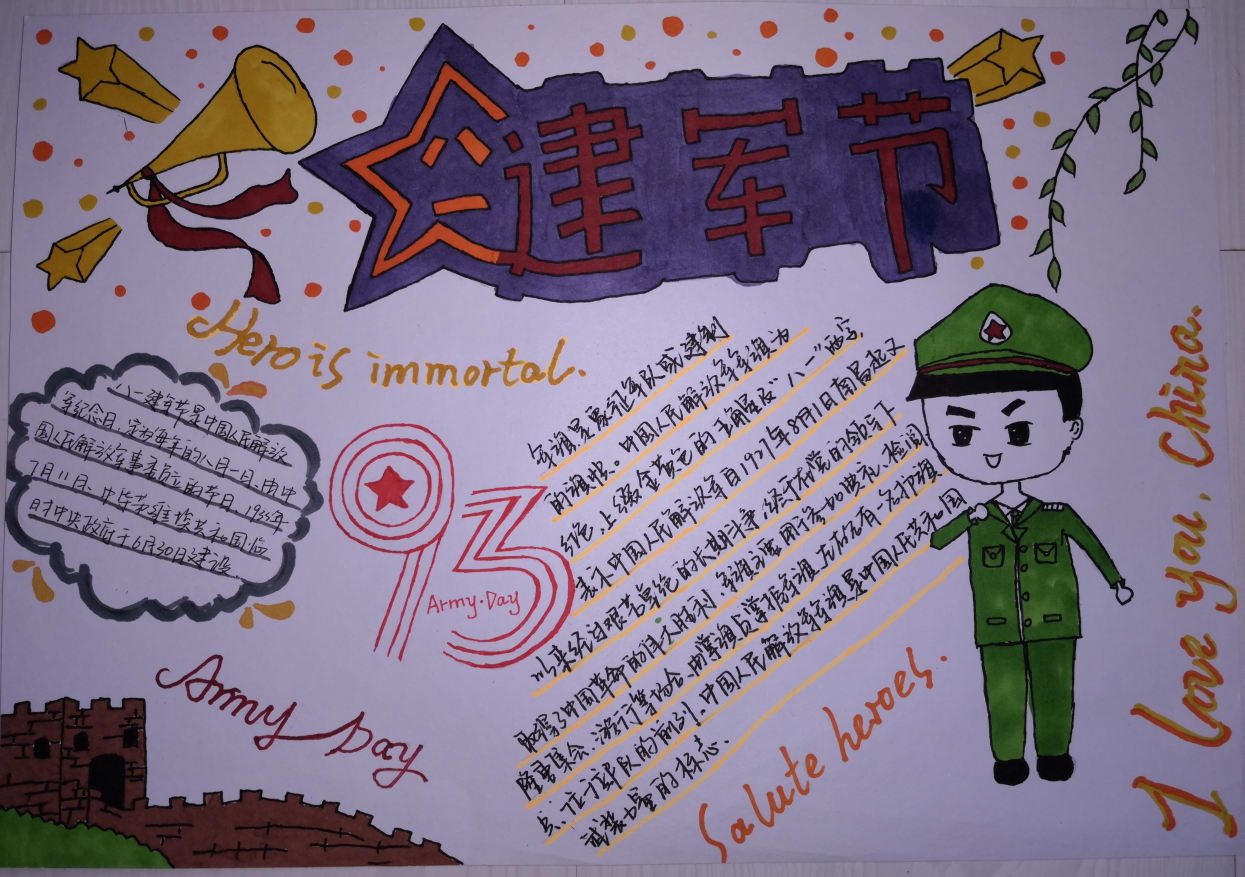 八一
建军节
Hero is immortal.
八一建军节是中国人民解放
军纪念日,定为每年的八月一日,由中
国人民解放军事委员立的节日。1933年
7月11日、中华苏维埃共和国临
时中央政府于6月30日建设
93
Army·Day
Army Day
军旗是象征军队或建制
的旗帜。中国人民解放军军旗为
红色上缀金黄色的五角星及"八一"两字,
表示中国人民解放军自1927年8月1日南昌起义
以来经过艰苦卓绝的长期斗争,
取得了中国革命的伟大胜利,军旗主要用于参加典礼、检阅、
隆重集会、游行等场合,由掌旗员掌持军旗,左右应有一名护旗
兵,位于部队的前列。中国人民解放军军旗是中国人民共和国
武装力量的标志.
Salute heroes.
I Love you, China.